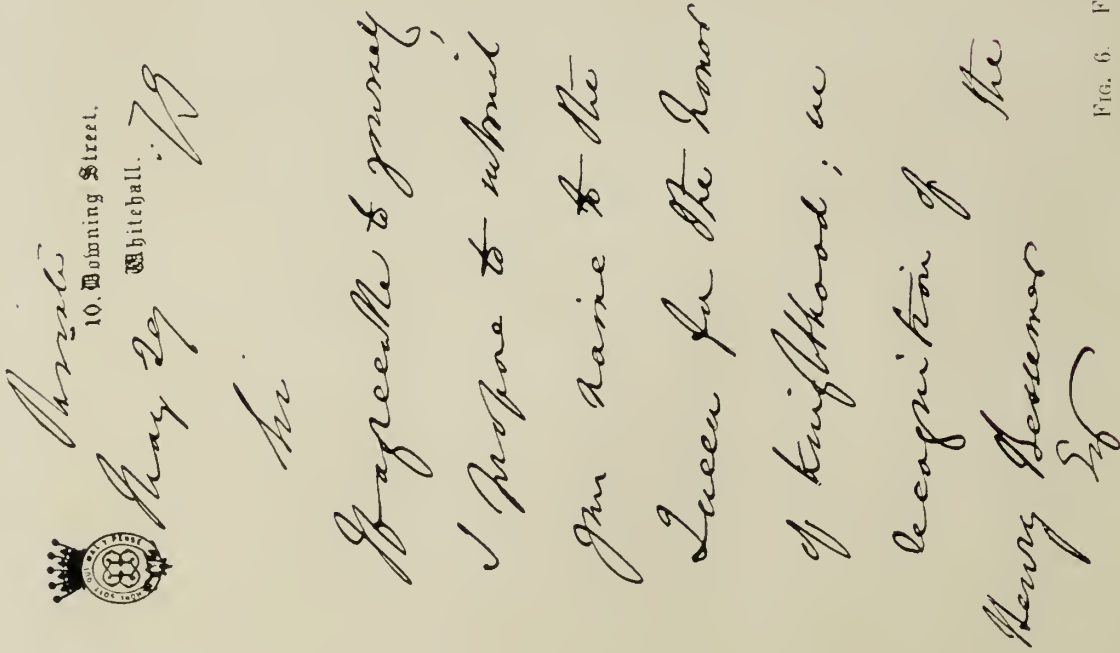 Private
10. Downing Street,
Whitehall.
May 29 /79
HONI SOIT QUI MAL Y PENSE
Sir
If agreeable to yourself,
I propose to submit
your name to the
Queen for the honor
of knighthood; in
recognition of the
Henry Bessemer
Esq
FIG. 6. F